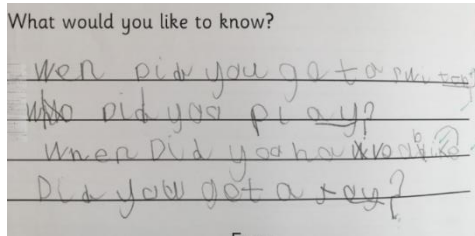 What would you like to know?
Wen Did you get a
Who Did you play?
Wnen Did you
Did you got a